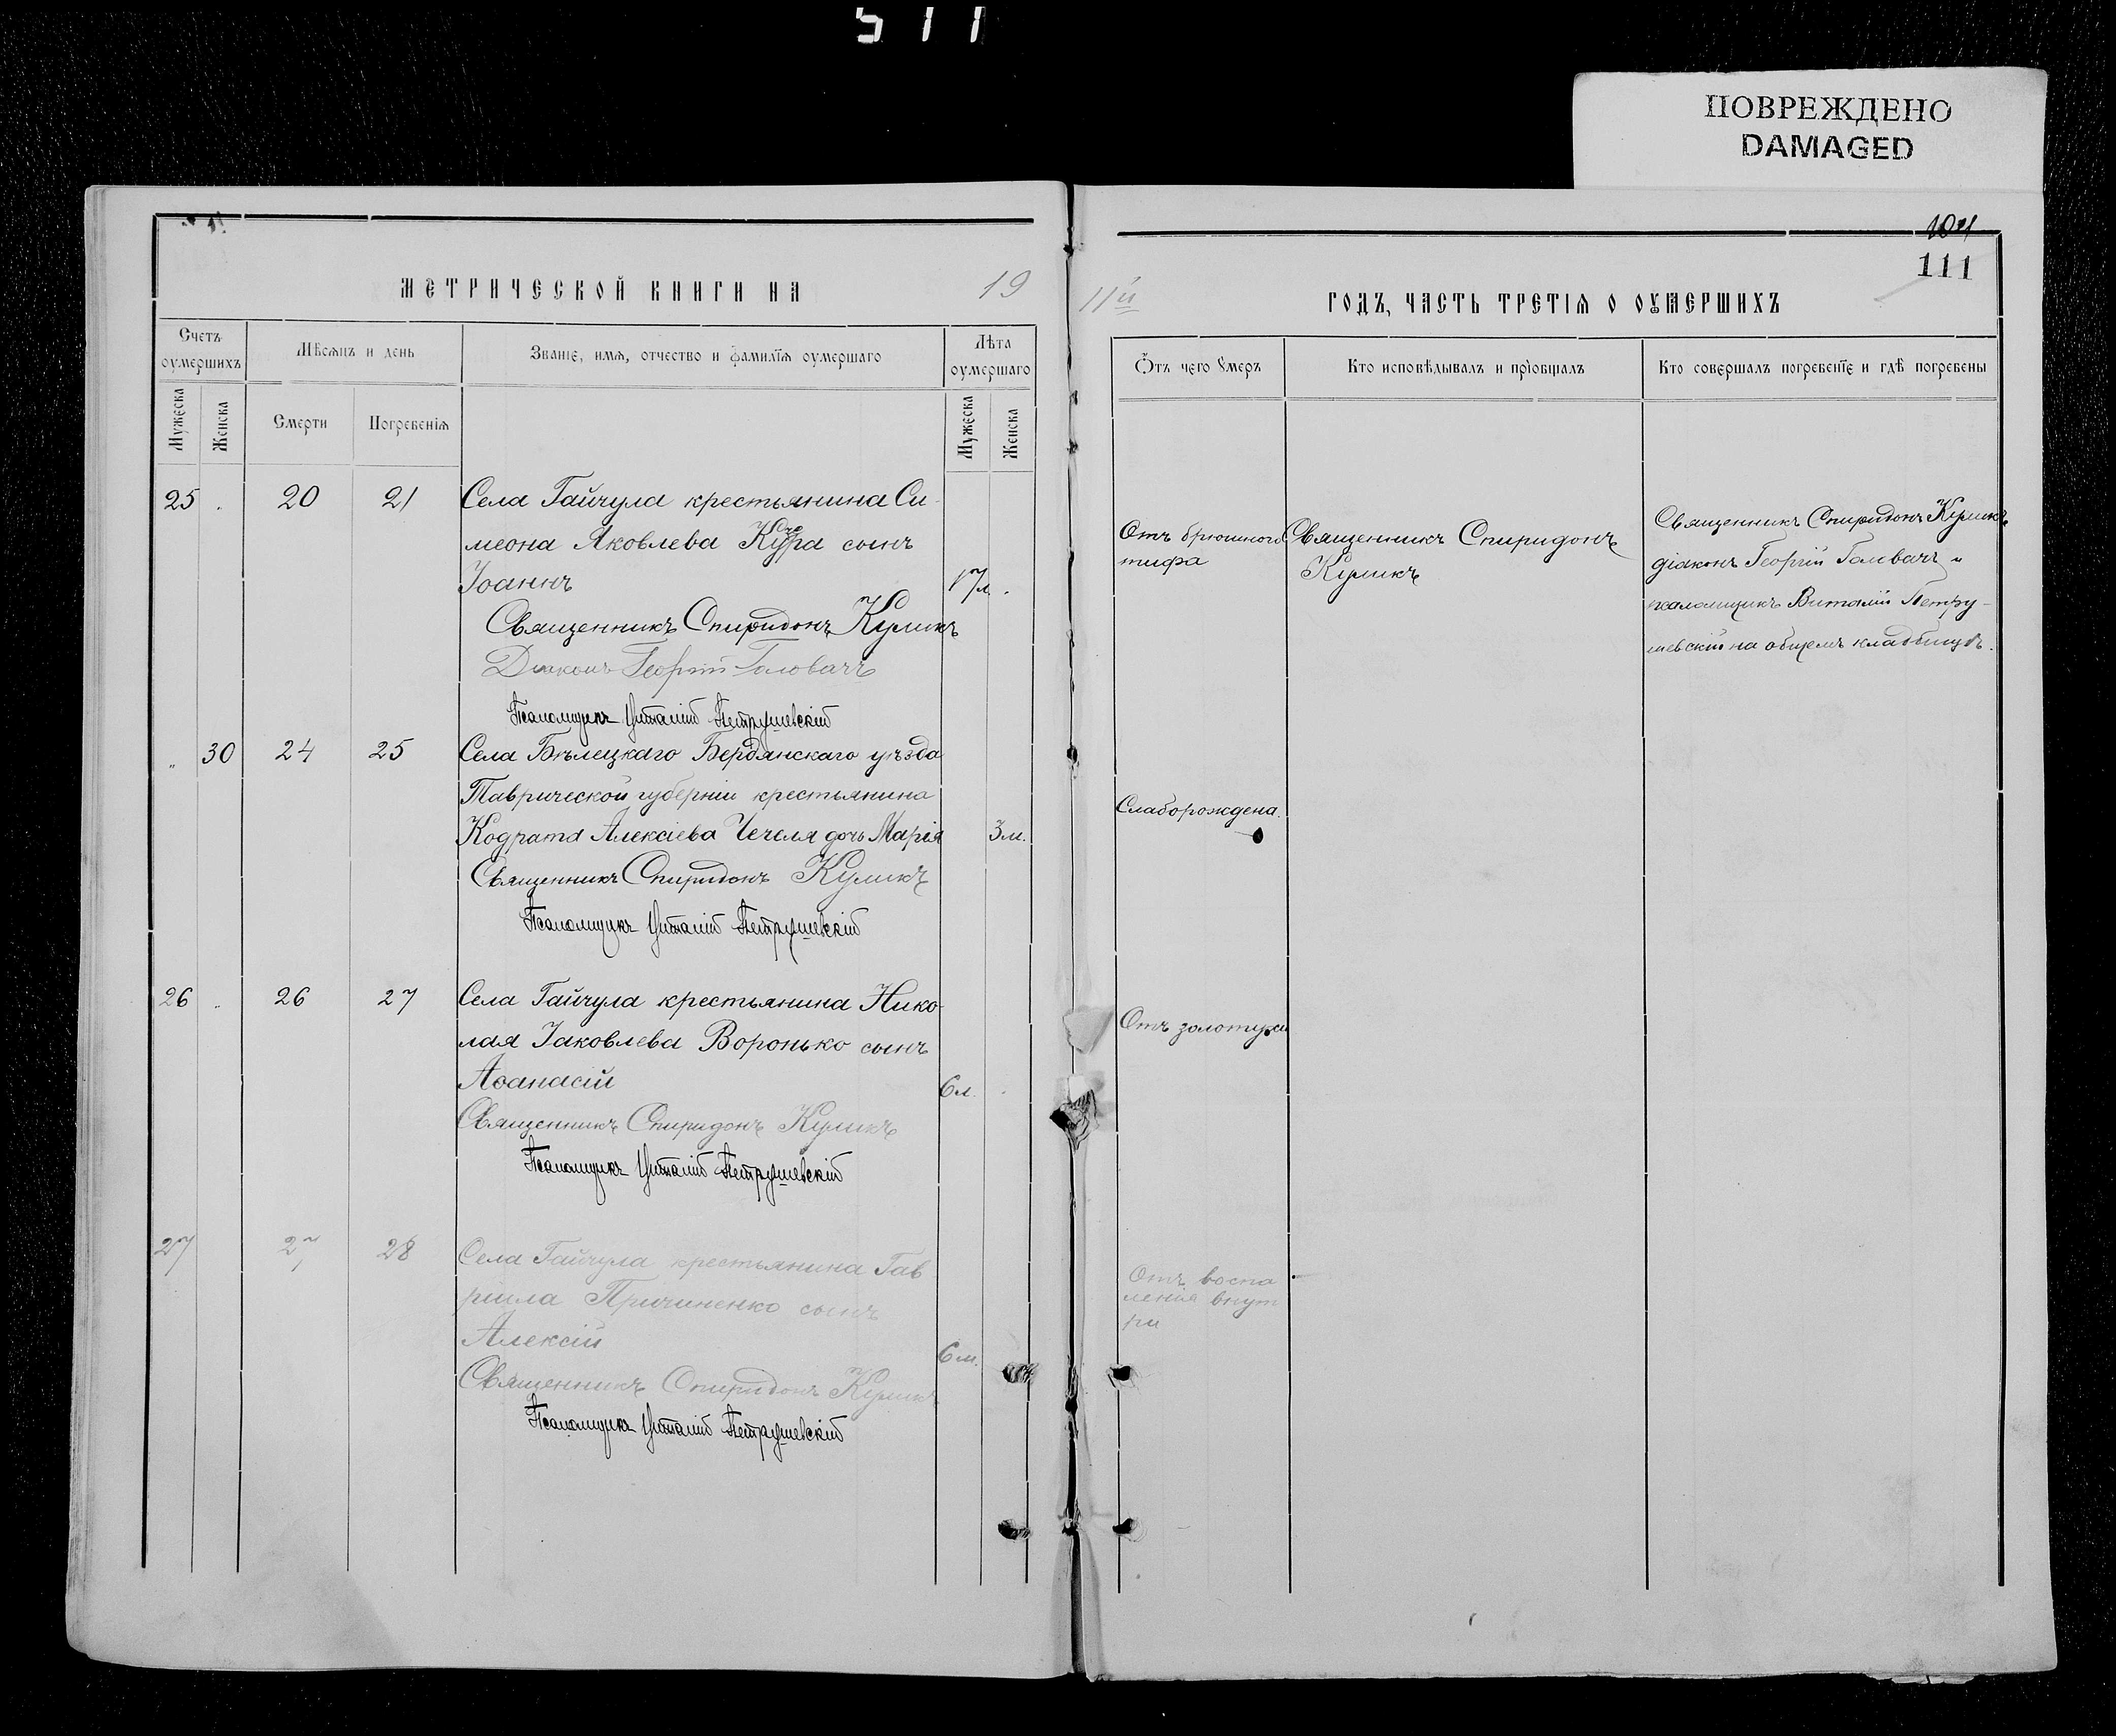 511
ПОВРЕЖДЕНО
DAMAGED
111
МЕТРИЧЕСКОЙ КНИГИ НА 19
11й ГОДЪ, ЧАСТЬ ТРЕТІѦ О ОУМЕРШИХЪ
Счетъ оумершихъ
Мѣсѧцъ и день
Званіе, имѧ, отчество и фамилїѧ оумершаго
Лѣта оумершаго
Ѿтъ чего Умеръ
Кто исповѣдывалъ и прїобщалъ
Кто совершалъ погребенїе и гдѣ погребены
Мужеска
Женска
Смерти
Погребенїѧ
Мужеска
Женска
25 20 21 Села Гайчула крестьянина Си-
меона Яковлева Кура сынъ
Іоаннъ 17л.
Священникъ Спиридонъ Куликъ
Діаконъ Георгій Головачъ
Псаломщикъ Виталій Петрушевскій
Отъ брюшного
тифа
Священникъ Спиридонъ
Куликъ
Священникъ Спиридонъ Куликъ,
діаконъ Георгій Головачъ и
псаломщикъ Виталій Петру-
шевскій на общемъ кладбищѣ.
„ 30 24 25 Села Бѣлецкаго Бердянскаго уѣзда
Таврической губерніи крестьянина
Кодрата Алексіева Чечеля дочь Марія 3м.
Священникъ Спиридонъ Куликъ
Псаломщикъ Виталій Петрушевскій
Слаборождена.
26 26 27 Села Гайчула крестьянина Нико-
лая Іаковлева Воронько сынъ
Аѳанасій 6л.
Священникъ Спиридонъ Куликъ
Псаломщикъ Виталій Петрушевскій
Отъ золотухи
27 27 28 Села Гайчула крестьянина Гав
ріила Причиненко сынъ
Алексій 6м.
Священникъ Спиридонъ Куликъ
Псаломщикъ Виталій Петрушевскій
Отъ воспа
ленія внут
ри